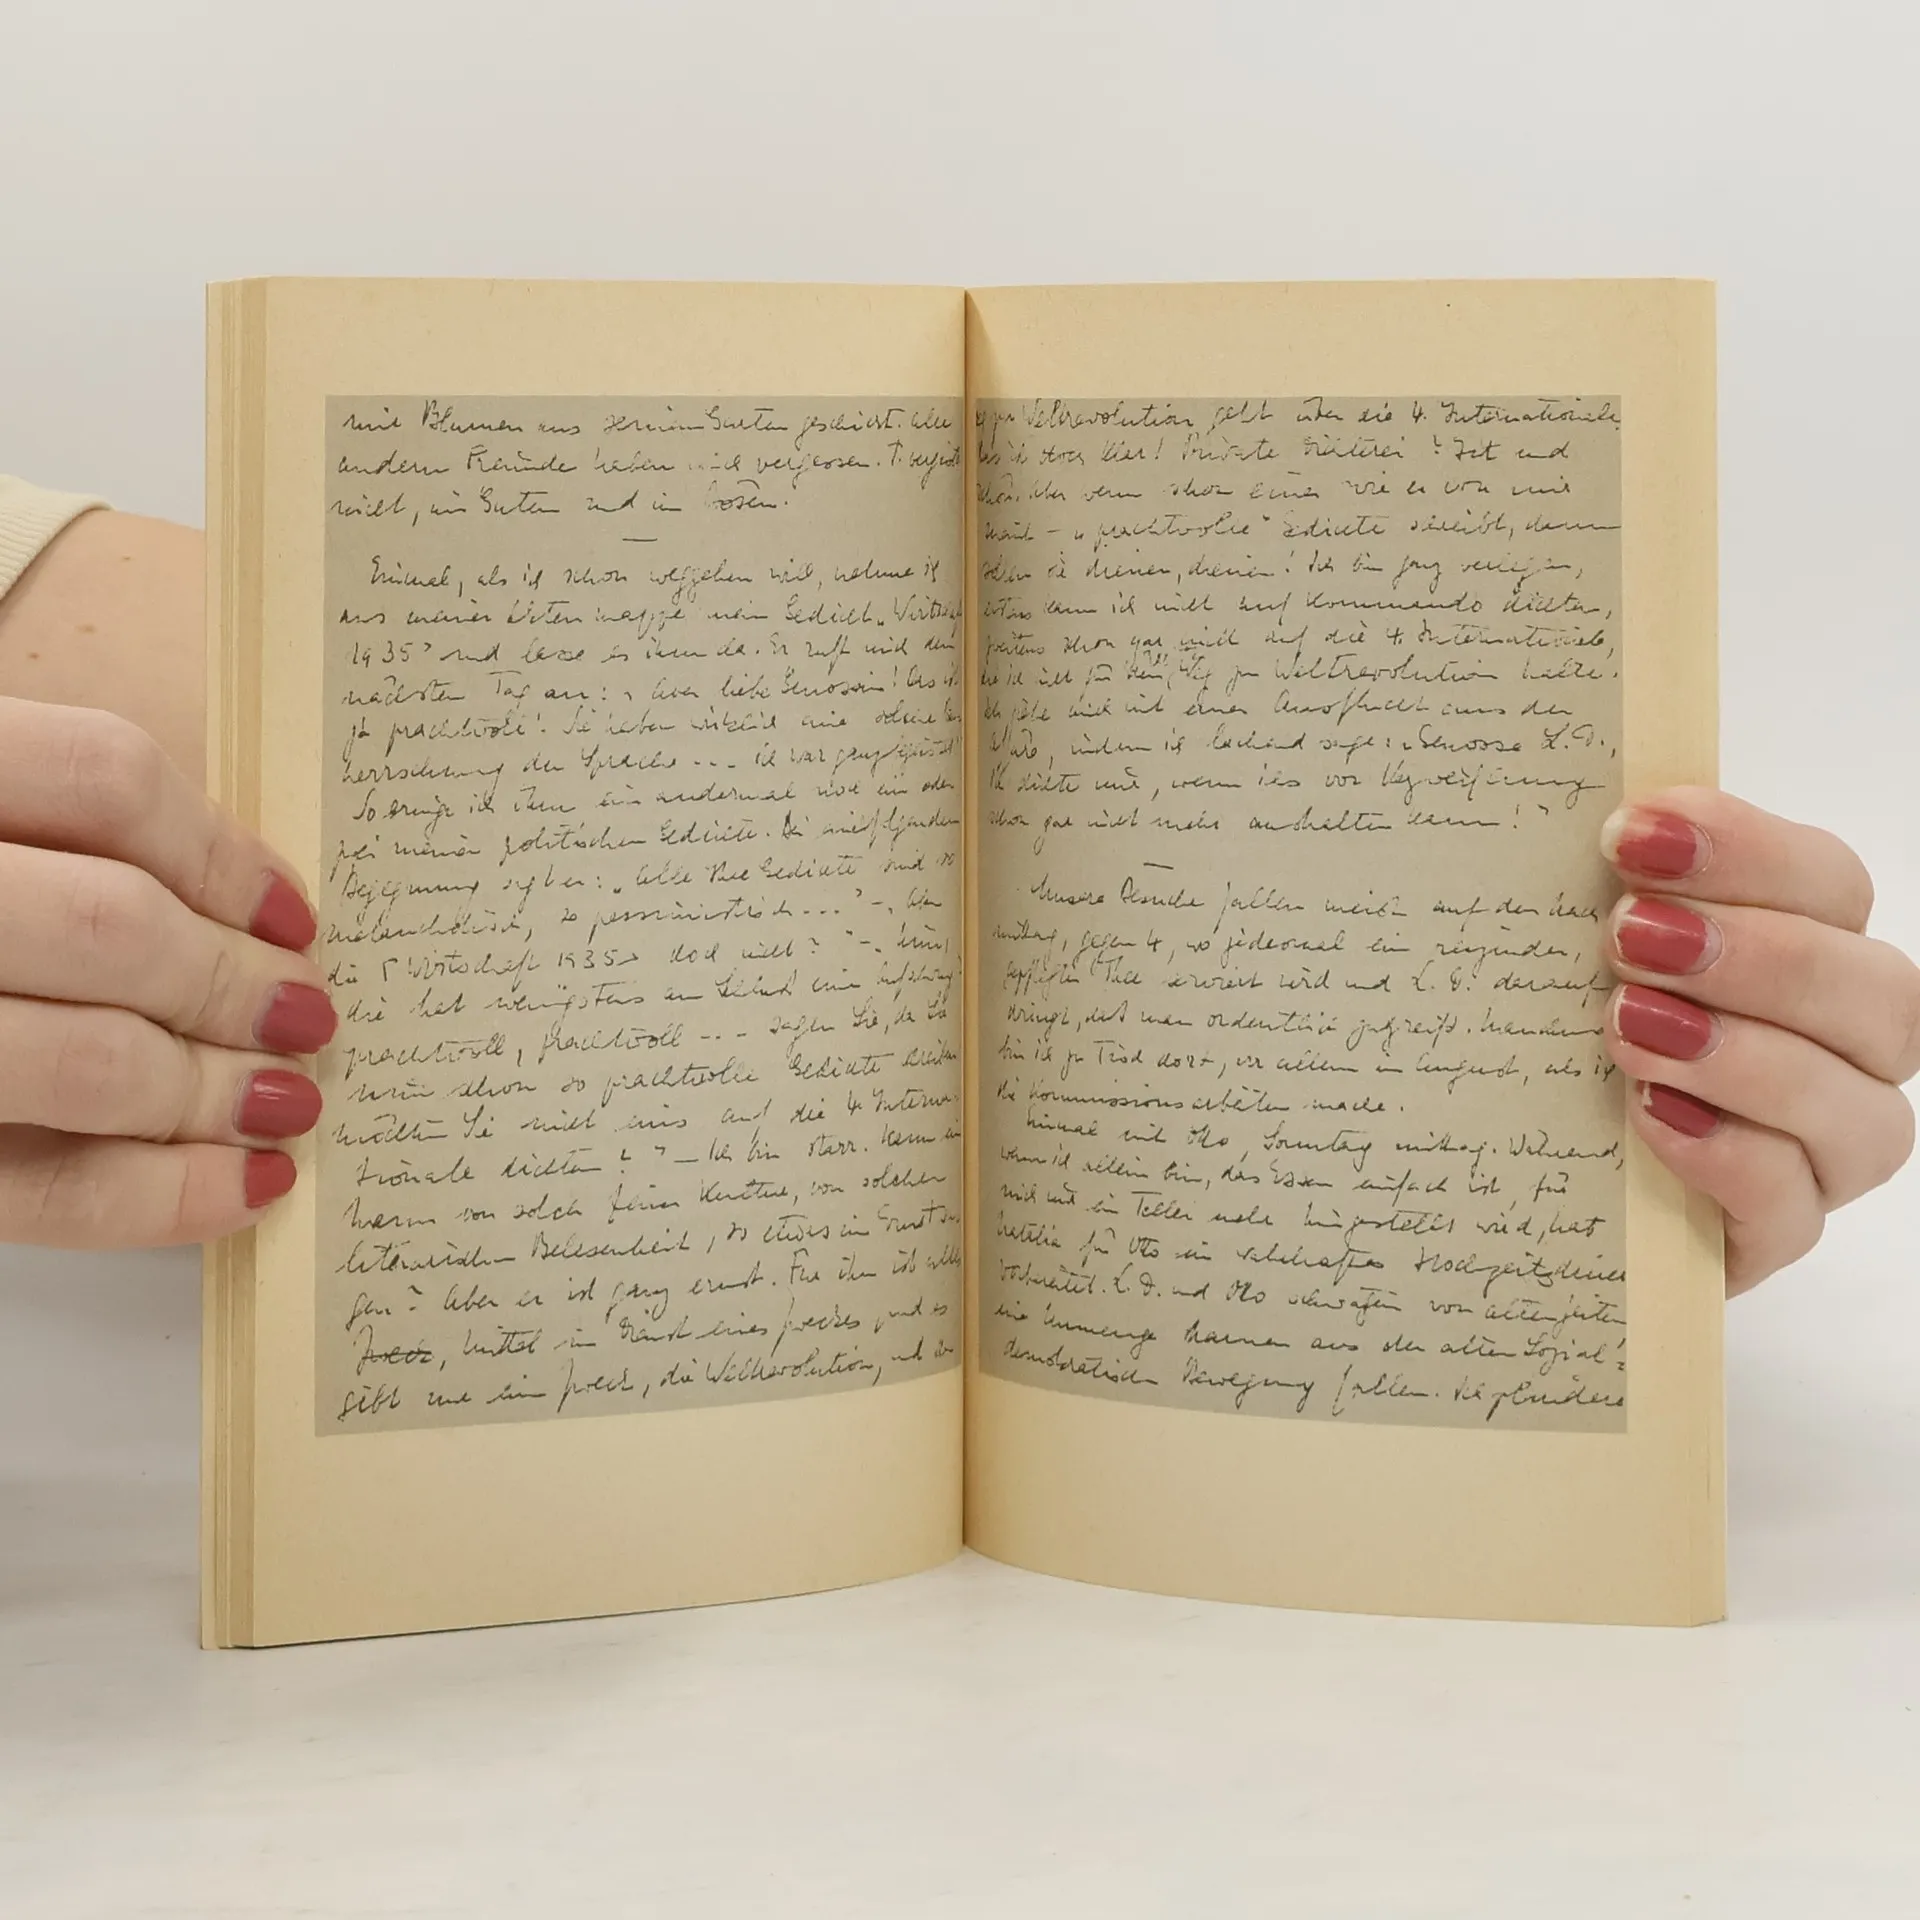 mit Blumen aus seinem Garten geschickt. Alle
andern Freunde haben mich vergessen. T. vergisst
nicht, im Guten und im Bösen.
Einmal, als ich schon weggehen will, nehme ich
aus meiner Aktenmappe mein Gedicht „Wirtschaft
1935" und lasse es ihm da. Er ruft mich den
nächsten Tag an: „Aber liebe Genossin! Das ist
ja prachtvoll! Sie haben wirklich eine solche Be
herrschung der Sprache --- ich war ganz begeistert"
So bringe ich ihm ein andermal noch ein oder
zwei meiner politischen Gedichte. Bei
Begegnung sagt er: „Alle Ihre Gedichte sind so
melancholisch, so pessimistisch ..." -, Aber
die „Wirtschaft 1935" doch nicht?" -, Nein,
die hat wenigstens am Schluss eine
prachtvoll, prachtvoll --- sagen Sie, da Sie
nun schon so prachtvolle Gedichte schreiben
möchten Sie nicht eins auf die 4. Interna-
tionale dichten?" — Ich bin starr. Kann ein
Mann von solch feiner Kultur, von solcher
literarischen Belesenheit, so etwas im Ernst sa
gen? Aber er ist ganz ernst. Für ihn ist alles
Zweck, Mittel im Dienst eines Zweckes und es
gibt nur ein Zweck, die Weltrevolution, und der
Weg zur Weltrevolution geht über die 4. Internationale,
das ist doch klar! Private Dichterei? Gut und
schön. Aber wenn schon einer wie er von mir
meint - „prachtvolle" Gedichte schreibt, dann
sollen sie dienen, dienen! Ich bin ganz verlegen,
erstens kann ich nicht auf Kommando dichten,
zweitens schon gar nicht auf die 4. Internationale,
die ich nicht für den Weg zur Weltrevolution halte.
Ich ziehe mich mit einer Ausflucht aus der
indem ich lachend sage: „Genosse L. D.,
Ich dichte nur, wenn ich's vor Verzweiflung
schon gar nicht mehr aushalten kann!"
Unsere Besuche fallen meist auf den Nach
mittag, gegen 4, wo jedesmal ein reizender,
gepflegter Thee serviert wird und L. D. darauf
dringt, dass man ordentlich zugreift. Manchmal
bin ich zu Tisch dort, vor allem im August, als ich
die Kommissionsarbeiten mache.
Einmal mit Otto, Sonntag mittag. Während,
wenn ich allein bin, das Essen einfach ist, für
mich nur ein Teller mehr hingestellt wird, hat
Natalia für Otto ein wahrhaftes Hochzeitsdiner
vorbereitet. L. D. und Otto schwatzen von alten Zeiten
eine Unmenge Namen aus der alten Sozial-
demokratischen Bewegung fallen. Sie plaudern